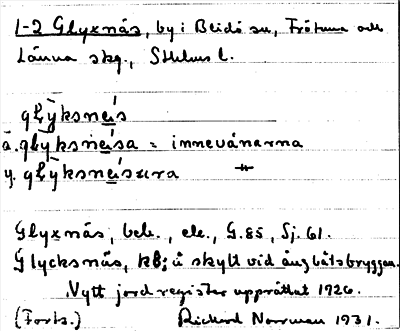 1-2 Glyxnäs, by i Blidö sn, Frötuna och
Länna skg., Sthlms l.
glỳksnä̀s
ä. glỳksnä̀sa = innevånarna
y. glỳksnä̀sara
Glyxnäs, beb., ek., G.85, Sj. 61.
Glycksnäs, kB; å skylt vid ångbåtsbryggan.
Nytt jordregister upprättat 1926.
(Forts.) Rickard Norrman 1931.